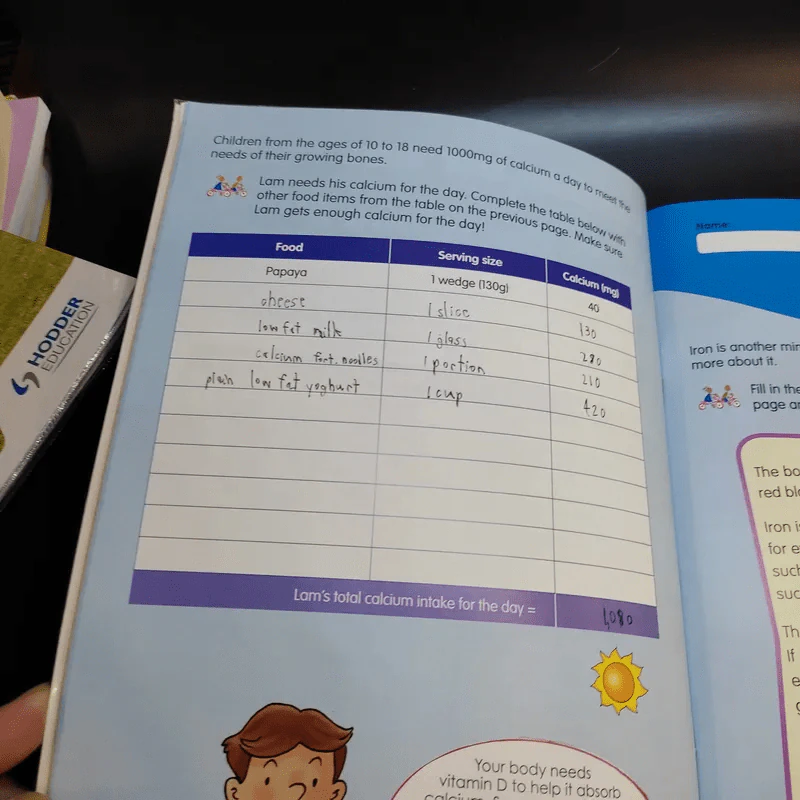 Children from the ages of 10 to 18 need 1000mg of calcium a day to meet the
needs of their growing bones.
Lam needs his calcium for the day. Complete the table below with
other food items from the table on the previous page. Make sure
Lam gets enough calcium for the day!
Food Serving size Calcium (mg)
Papaya 1 wedge (130g) 40
cheese 1 slice 130
low fat milk 1 glass 280
calcium fort. noodles 1 portion 210
plain low fat yoghurt 1 cup 420
Lam's total calcium intake for the day = 1,080
Your body needs
vitamin D to help it absorb
HODDER
EDUCATION
Name:
Iron is another
more about it.
Fill in the
page
The
red
Iron
for
such
If